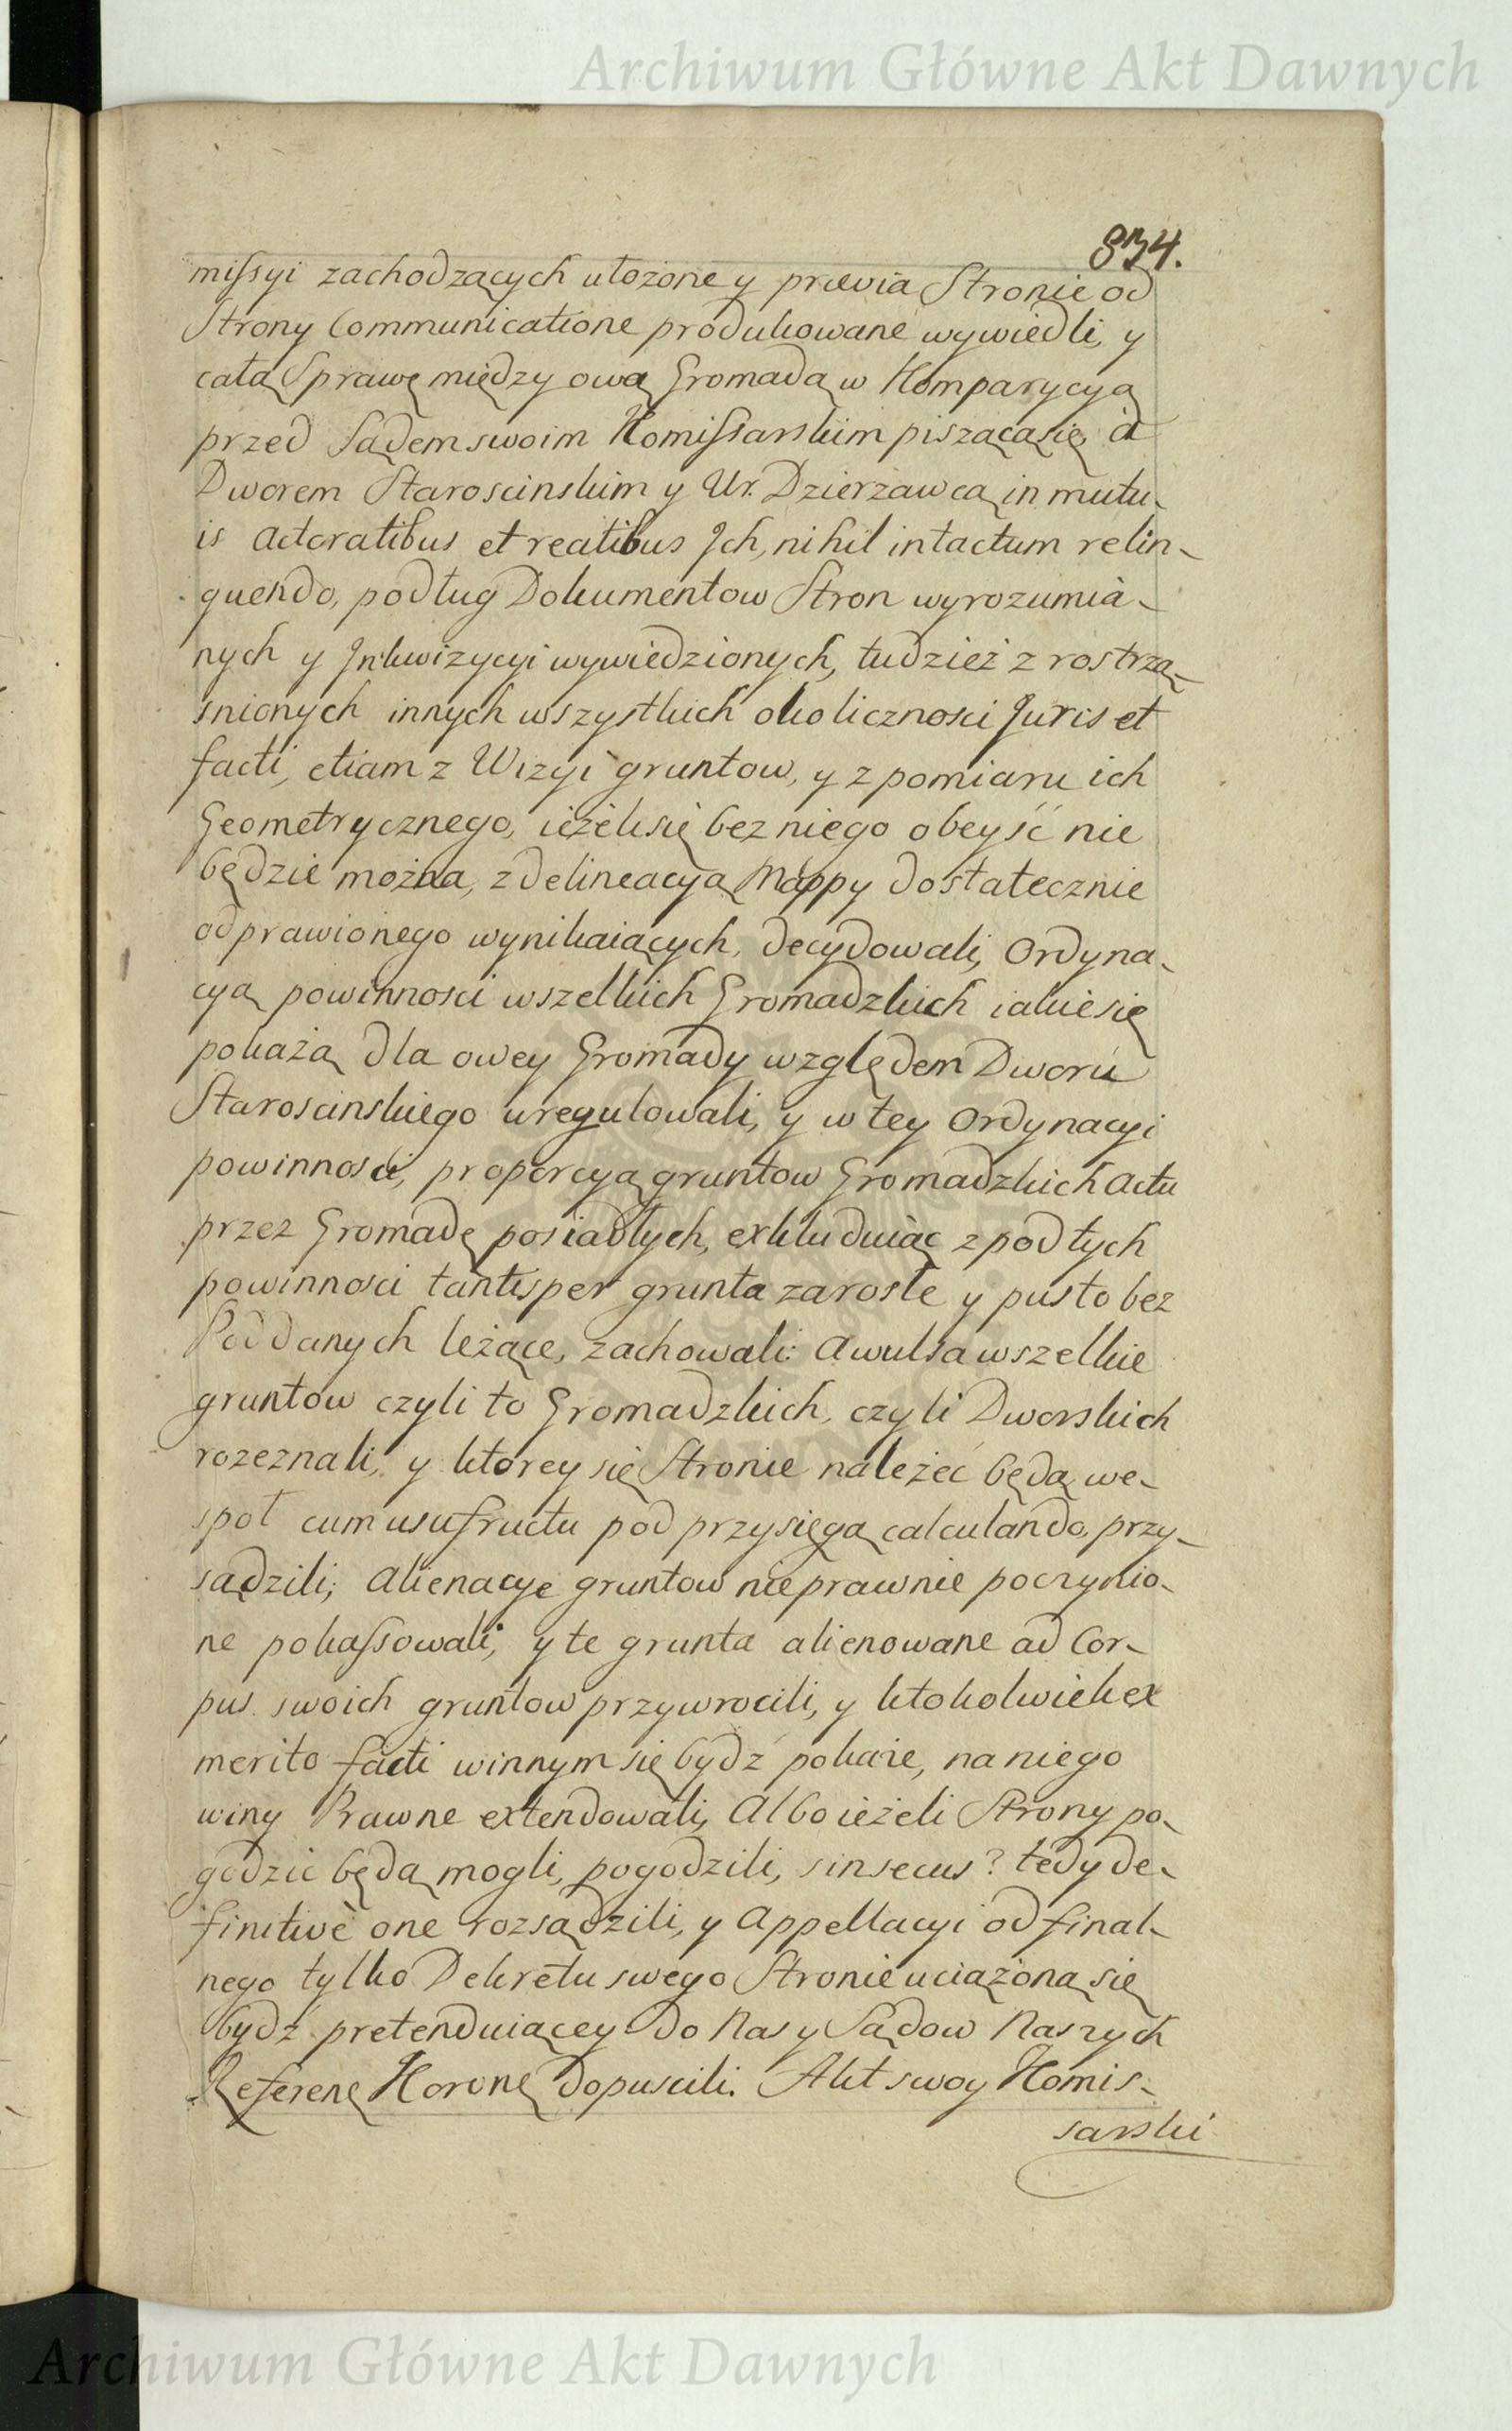 Archiwum Główne Akt Dawnych
834.
missyi zachodzących ułożone y prævia Stronie od
Strony Communicatione produkowane wywiedli, y
całą Sprawę między ową Gromadą w Komparycyą
przed Sądem swoim Komissarskim piszącą się, á
Dworem Starościnskim y Ur. Dzierżawcą in mutu-
is actoratibus et reatibus Jch, nihil intactum relin-
quendo, podług Dokumentow Stron wyrozumia-
nych y Jnkwizycyi wywiedzionych, tudzież z rostrzą-
snionych innych wszystkich okolicznosci Juris et
facti, etiam z Wizyi gruntow, y z pomiaru ich
Geometrycznego, ieżeli się bez niego obeyść nie
będzie można, z delineacyą Mappy dostatecznie
odprawionego wynikaiących, decydowali, Ordyna-
cyą powinnosci wszelkich Gromadzkich iakie się
pokażą dla owey Gromady względem Dworu
Staroscinskiego uregulowali, y w tey Ordynacyi
powinnosci, proporcyą gruntow Gromadzkich actu
przez Gromadę posiadłych, exkluduiąc z pod tych
powinnosci tantisper grunta zarosłe y pusto bez
Poddanych leżące, zachowali: Awulsa wszelkie
gruntow czyli to Gromadzkich, czyli Dworskich
rozeznali, y ktorey się Stronie należeć będą we-
społ cum usufructu pod przysięgą calculando, przy-
sądzili; Alienacye gruntow nieprawnie poczynio-
ne pokassowali, y te grunta alienowane ad Cor-
pus swoich gruntow przywrocili, y ktokolwiek ex
merito facti winnym się bydź pokaże, na niego
winy Prawne extendowali, Albo ieżeli Strony po-
godzic będą mogli, pogodzili, sin secus? tedy de-
finitivè one rozsądzili, y Appellacyi od final-
nego tylko Dekretu swego Stronie uciążoną się
bydź pretenduiącey do Nas y Sądow Naszych
Referen Koron dopuscili. Akt swoy Komis-
sarski
Archiwum Główne Akt Dawnych